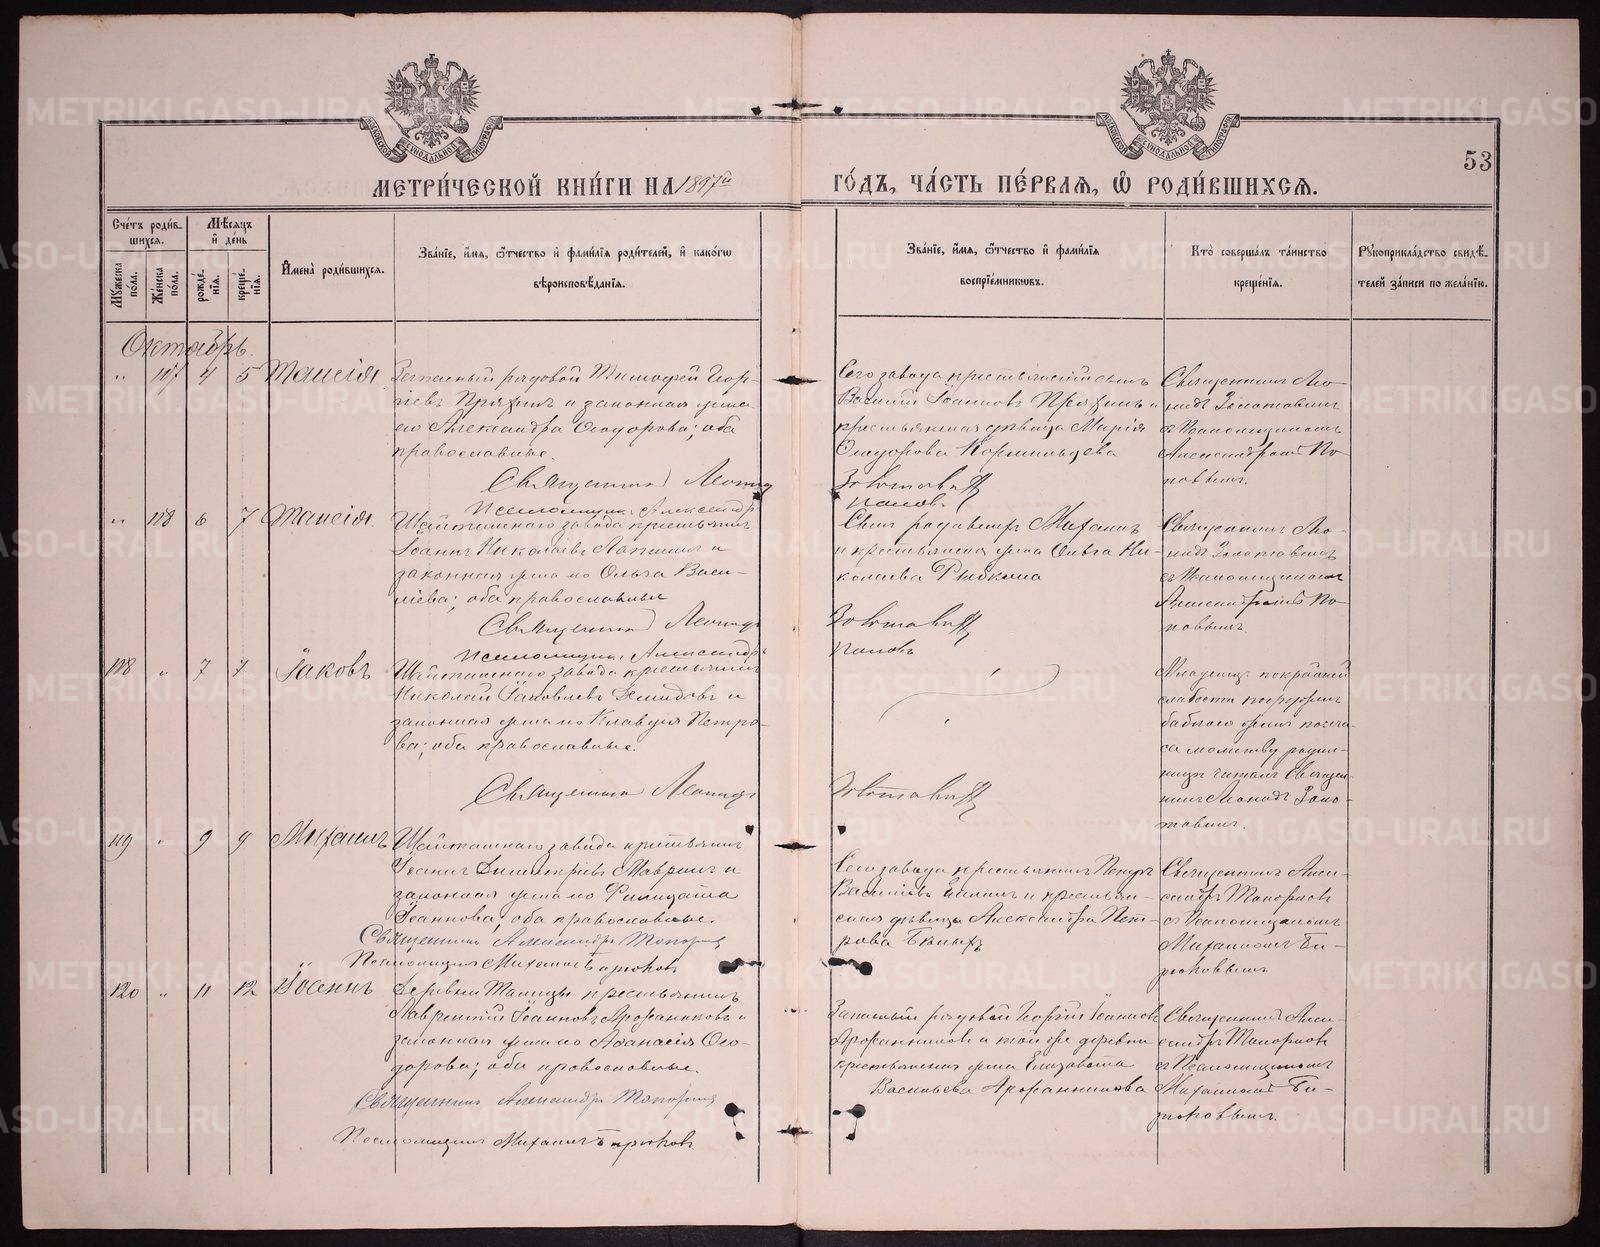 МЕТРИЧЕСКОЙ КНИГИ НА 1897й
ГОДЪ, ЧАСТЬ ПЕРВАЯ, Ѡ РОДИВШИХСЯ.
53
Счетъ родив-
шихся.
Мѣсяцъ
и день
Мужеска
пола.
Женска
пола.
рожде-
нія.
креще-
нія.
Имена родившихся.
Званіе, имя, ѿтчество и фамилія родителей, и какогѡ
вѣроисповѣданія.
Званіе, имя, ѿтчество и фамилія
воспріемникѡвъ.
Кто совершалъ таинство
крещенія.
Рукоприкладство свидѣ-
телей записи по желанію.
Октябрь.
" 107 4 5 Таисія
Запасный рядовой Тимофей Геор-
гіевъ Пряхинъ и законная жена
его Александра Ѳеодорова; оба
православные.
Священникъ Леонид
Сего завода крестьянскій сынъ
Василій Іоанновъ Пряхинъ и
крестьянская дѣвица Марія
Ѳеодорова Кормильцева
Золотавинъ
Попов.
Священникъ Лео-
нидъ Золотавинъ
съ Псаломщикомъ
Александромъ По-
повымъ.
" 108 6 7 Таисія
Псаломщикъ Александръ
Шайтанскаго завода крестьянинъ
Іоаннъ Николаевъ Лапшинъ и
законная жена его Ольга Васи-
ліева; оба православные
Священникъ Леонидъ
рядовой Михаилъ
и крестьянская жена Ольга Ни-
колаева Рыбкина
Золотавинъ
Поповъ
Священникъ Лео-
нидъ Золотавинъ
съ Псаломщикомъ
Александромъ По-
повымъ
118 " 7 7 Іаковъ
Псаломщикъ Александръ
Шайтанскаго завода крестьянинъ
Николай Іаковлевъ Демидовъ и
законная жена его Клавдія Петро-
ва; оба православные.
Священникъ Леонидъ
Золотавинъ
Младенецъ по крайней
слабости погруженъ
бабкою
молитву родил-
ницѣ читалъ Священ-
никъ Леонидъ Золо-
тавинъ.
119 " 9 9 Михаилъ
Шайтанскаго завода крестьянинъ
Іоаннъ Димитріевъ Мавринъ и
законная жена его
Іоаннова; оба православные.
Священникъ Александръ Топорковъ
Псаломщикъ Михаилъ Бирюковъ
Сего завода крестьянинъ Петръ
Василіевъ и крестьян-
ская дѣвица Александра Пет-
рова Бѣлыхъ
Священникъ Алек-
сандръ Топорковъ
съ Псаломщикомъ
Михаиломъ Би-
рюковымъ
120 " 11 12 Іоаннъ
Деревни Талицы крестьянинъ
Лаврентій Іоанновъ Арожанниковъ и
законная жена его Аѳанасія Ѳео-
дорова; оба православные.
Священникъ Александръ Топорковъ
Псаломщикъ Михаилъ Бирюковъ
Запасный рядовой Георгій Іоанновъ
Арожанниковъ и той же деревни
крестьянская жена Елизавета
Васильева Арожанникова
Священникъ Алек-
сандръ Топорковъ
съ Псаломщикомъ
Михаиломъ Би-
рюковымъ.
METRIKI.GASO-URAL.RU